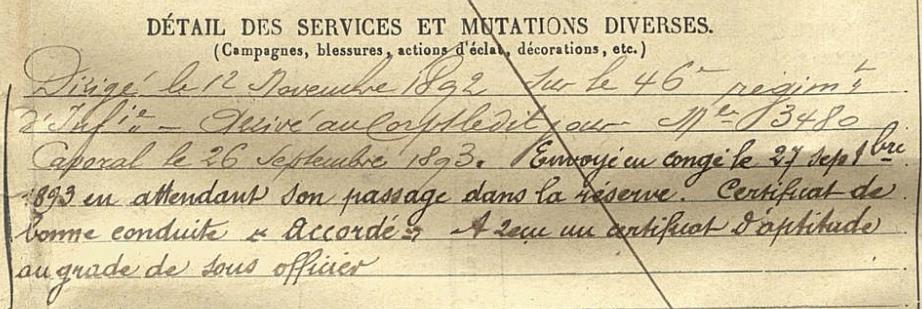 DÉTAIL DES SERVICES ET MUTATIONS DIVERSES.
(Campagnes, blessures, actions d'éclat, décorations, etc.)
Dirigé le 12 Novembre 1892 sur le 46e régimt
d'Infie — Arrivé au Corps le dit jour Mle 3480
Caporal le 26 Septembre 1893. Envoyé en congé le 27 septbre
1893 en attendant son passage dans la réserve. Certificat de
bonne conduite « Accordé » A reçu un certificat d'aptitude
au grade de sous officier